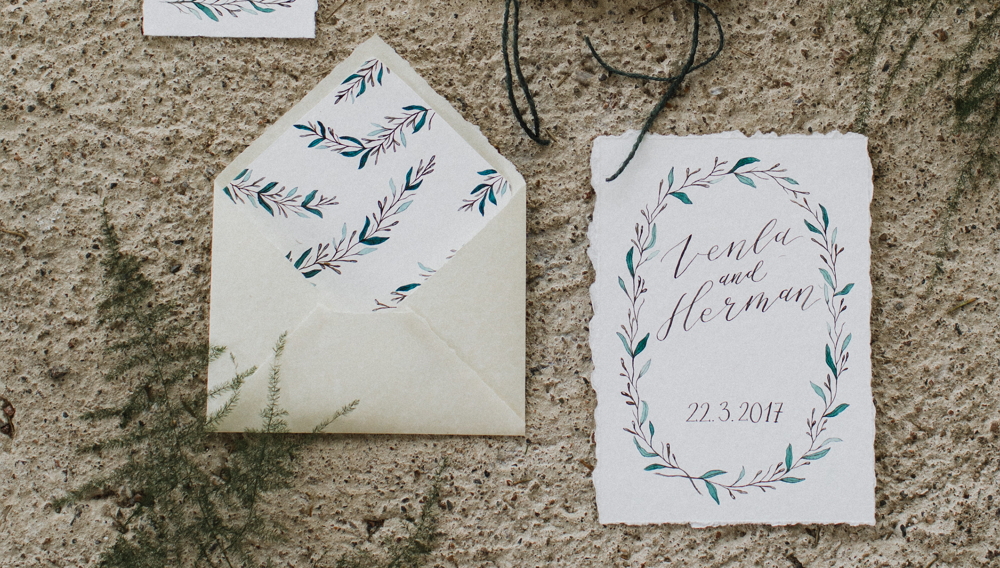 Venla
and
Herman
22.3.2017